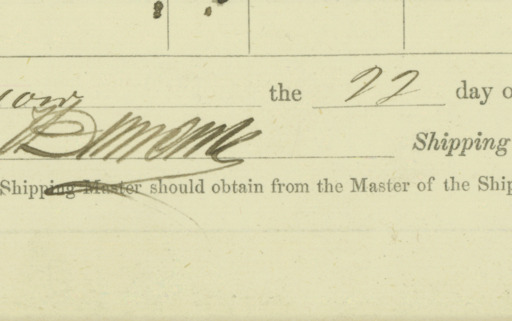 the 22 day o
Shipping
Shipping Master should obtain from the Master of the Ship